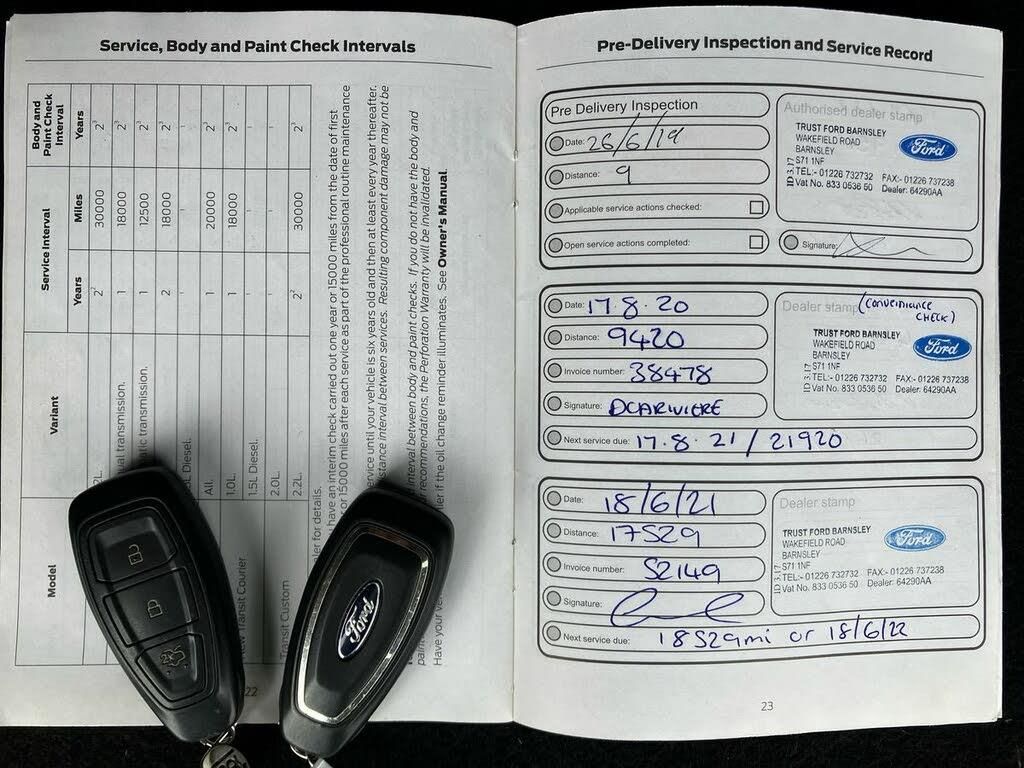 Service, Body and Paint Check Intervals
Model
Variant
Service Interval
Body and Paint Check Interval
Years
Miles
Years
2² 30000 2³
ual transmission. 1 18000 2³
atic transmission. 1 12500 2³
Diesel. 2 18000 2³
- - -
All. 1 20000 2³
1.0L. 1 18000 2³
1.5L Diesel. - - -
2.0L. - - -
2.2L. 2² 30000 2³
Transit Courier
Transit Custom
have an interim check carried out one year or 15000 miles from the date of first
or 15000 miles after each service as part of the professional routine maintenance
service until your vehicle is six years old and then at least every year thereafter.
distance interval between services. Resulting component damage may not be
interval between body and paint checks. If you do not have the body and
recommendations, the Perforation Warranty will be invalidated.
if the oil change reminder illuminates. See Owner's Manual.
Have your
22
Pre-Delivery Inspection and Service Record
Pre Delivery Inspection
Date: 26/6/19
Distance: 9
Applicable service actions checked:
Open service actions completed:
Authorised dealer stamp
TRUST FORD BARNSLEY
WAKEFIELD ROAD
BARNSLEY
S71 1NF
TEL:- 01226 732732 FAX:- 01226 737238
Vat No. 833 0536 50 Dealer: 64290AA
ID 3.17
Ford
Signature:
Date: 17.8.20
Distance: 9420
Invoice number: 38478
Signature: DCARIVIERE
Next service due: 17.8.21 / 21920
Dealer stamp (CONVENIANCE
CHECK)
TRUST FORD BARNSLEY
WAKEFIELD ROAD
BARNSLEY
S71 1NF
TEL:- 01226 732732 FAX:- 01226 737238
Vat No. 833 0536 50 Dealer: 64290AA
ID 3.17
Ford
Date: 18/6/21
Distance: 17529
Invoice number: 52149
Signature:
Next service due: 18529mi or 18/6/22
Dealer stamp
TRUST FORD BARNSLEY
WAKEFIELD ROAD
BARNSLEY
S71 1NF
TEL:- 01226 732732 FAX:- 01226 737238
Vat No. 833 0536 50 Dealer: 64290AA
ID 3.17
Ford
23
Ford